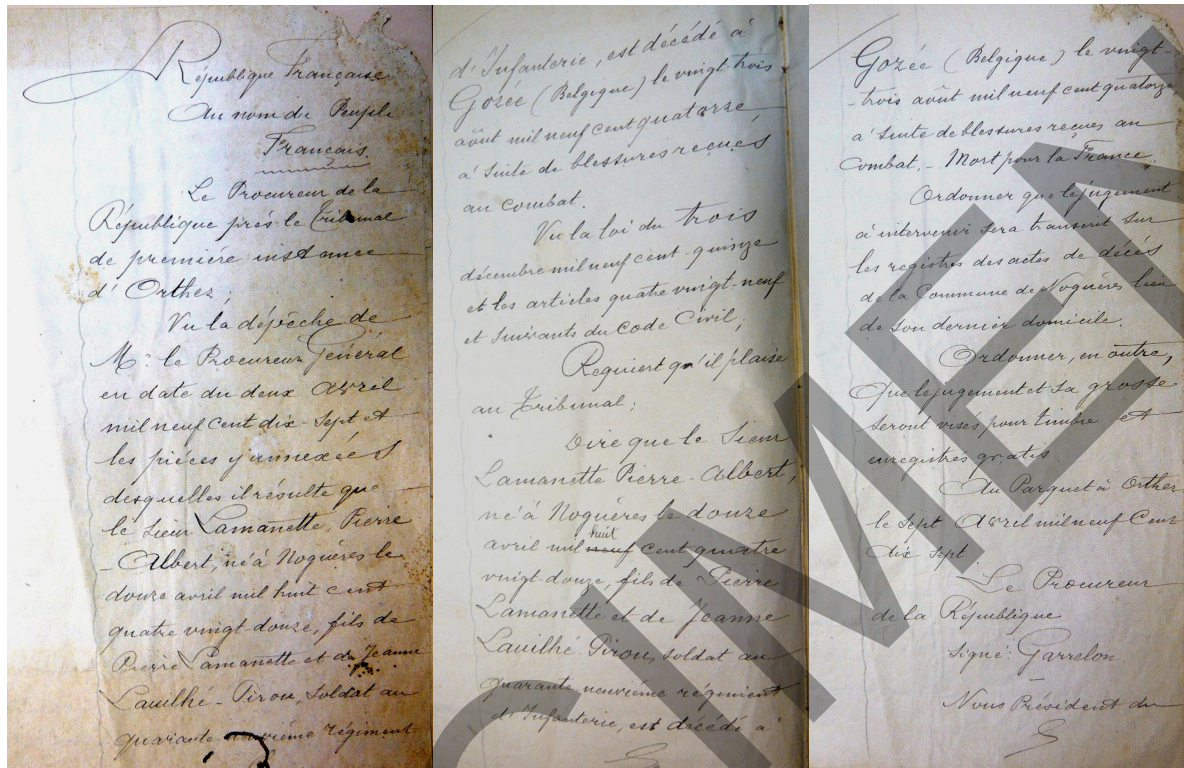 République Française
Au nom du Peuple
Français
Le Procureur de la
République près le Tribunal
de première instance
d'Orthez ;
Vu la dépêche de
Mr le Procureur Général
en date du deux avril
mil neuf cent dix-sept et
les pièces y annexées
desquelles il résulte que
le sieur Lamanette, Pierre
-Albert, né à Noguères le
douze avril mil huit cent
quatre vingt-douze, fils de
Pierre Lamanette et de Jeanne
Lauilhé-Pirou, soldat au
quarante neuvième régiment
d'Infanterie, est décédé à
Gozée (Belgique) le vingt trois
août mil neuf cent quatorze
à suite de blessures reçues
au combat.
Vu la loi du trois
décembre mil neuf cent-quinze
et les articles quatre vingt-neuf
et suivants du Code Civil ;
Requiert qu'il plaise
au Tribunal ;
Dire que le Sieur
Lamanette Pierre-Albert,
né à Noguères le douze
huit
avril mil neuf cent quatre
vingt-douze, fils de Pierre
Lamanette et de Jeanne
Lauilhé-Pirou, soldat au
quarante neuvième régiment
d'Infanterie, est décédé à
Gozée (Belgique) le vingt-
-trois août mil neuf cent quatorze
à suite de blessures reçues au
combat. - Mort pour la France.
Ordonner que le jugement
à intervenir sera transcrit sur
les registres des actes de décès
de la Commune de Noguères lieu
de son dernier domicile.
Ordonner, en outre,
que le jugement et sa grosse
seront visés pour timbre et
enregistrés gratis.
Au Parquet à Orthez
le sept Avril mil neuf Cent
dix sept
Le Procureur
de la République
Signé : Garrelon
Nous Président du
CIMEN